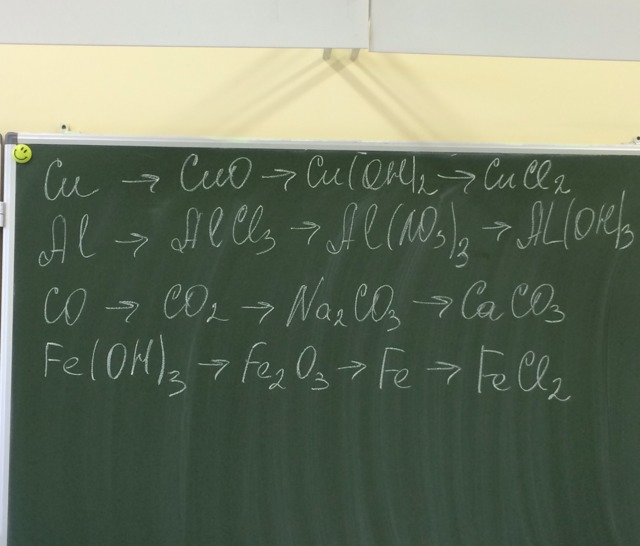 Cu → CuO → Cu(OH)2 → CuCl2
Al → AlCl3 → Al(NO3)3 → AL(OH)3
CO → CO2 → Na2CO3 → CaCO3
Fe(OH)3 → Fe2O3 → Fe → FeCl2